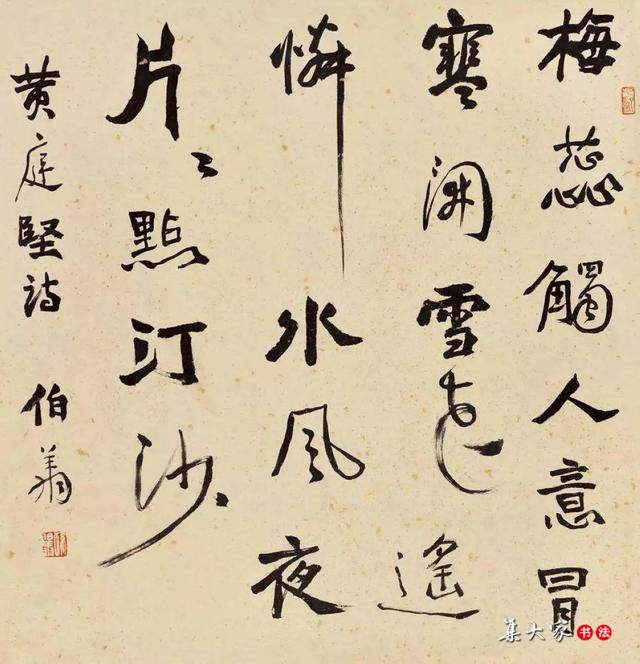 梅蕊觸人意冒
寒開雪花遙
憐水風夜
片〻點汀沙
黄庭堅詩 伯翁
集大家书法